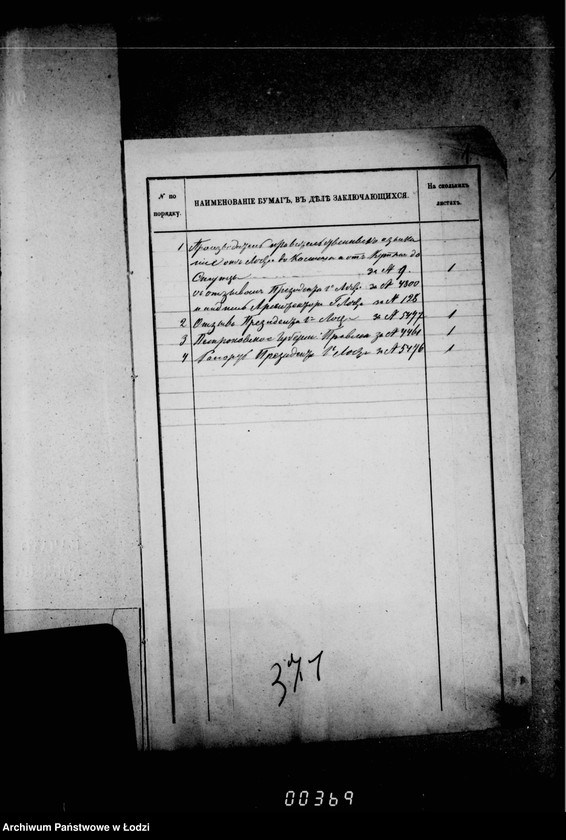 № по порядку.
НАИМЕНОВАНІЕ БУМАГЪ, ВЪ ДѢЛѢ ЗАКЛЮЧАЮЩИХСЯ.
На сколькихъ листахъ.
1 Производитель
отъ Лодзи до отъ Кутно до
за № 9. 1
съ отзывомъ Президента г. Лодзи за № 4300
Архитектора г. Лодзи за № 128
2 Отзывъ Президента г. Лодзи за № 5477 1
3 Петроковское Губерн. Правлен. за № 4461 1
4 Рапортъ Президента г. Лодзи за № 5476 1
371
00369
Archiwum Państwowe w Łodzi